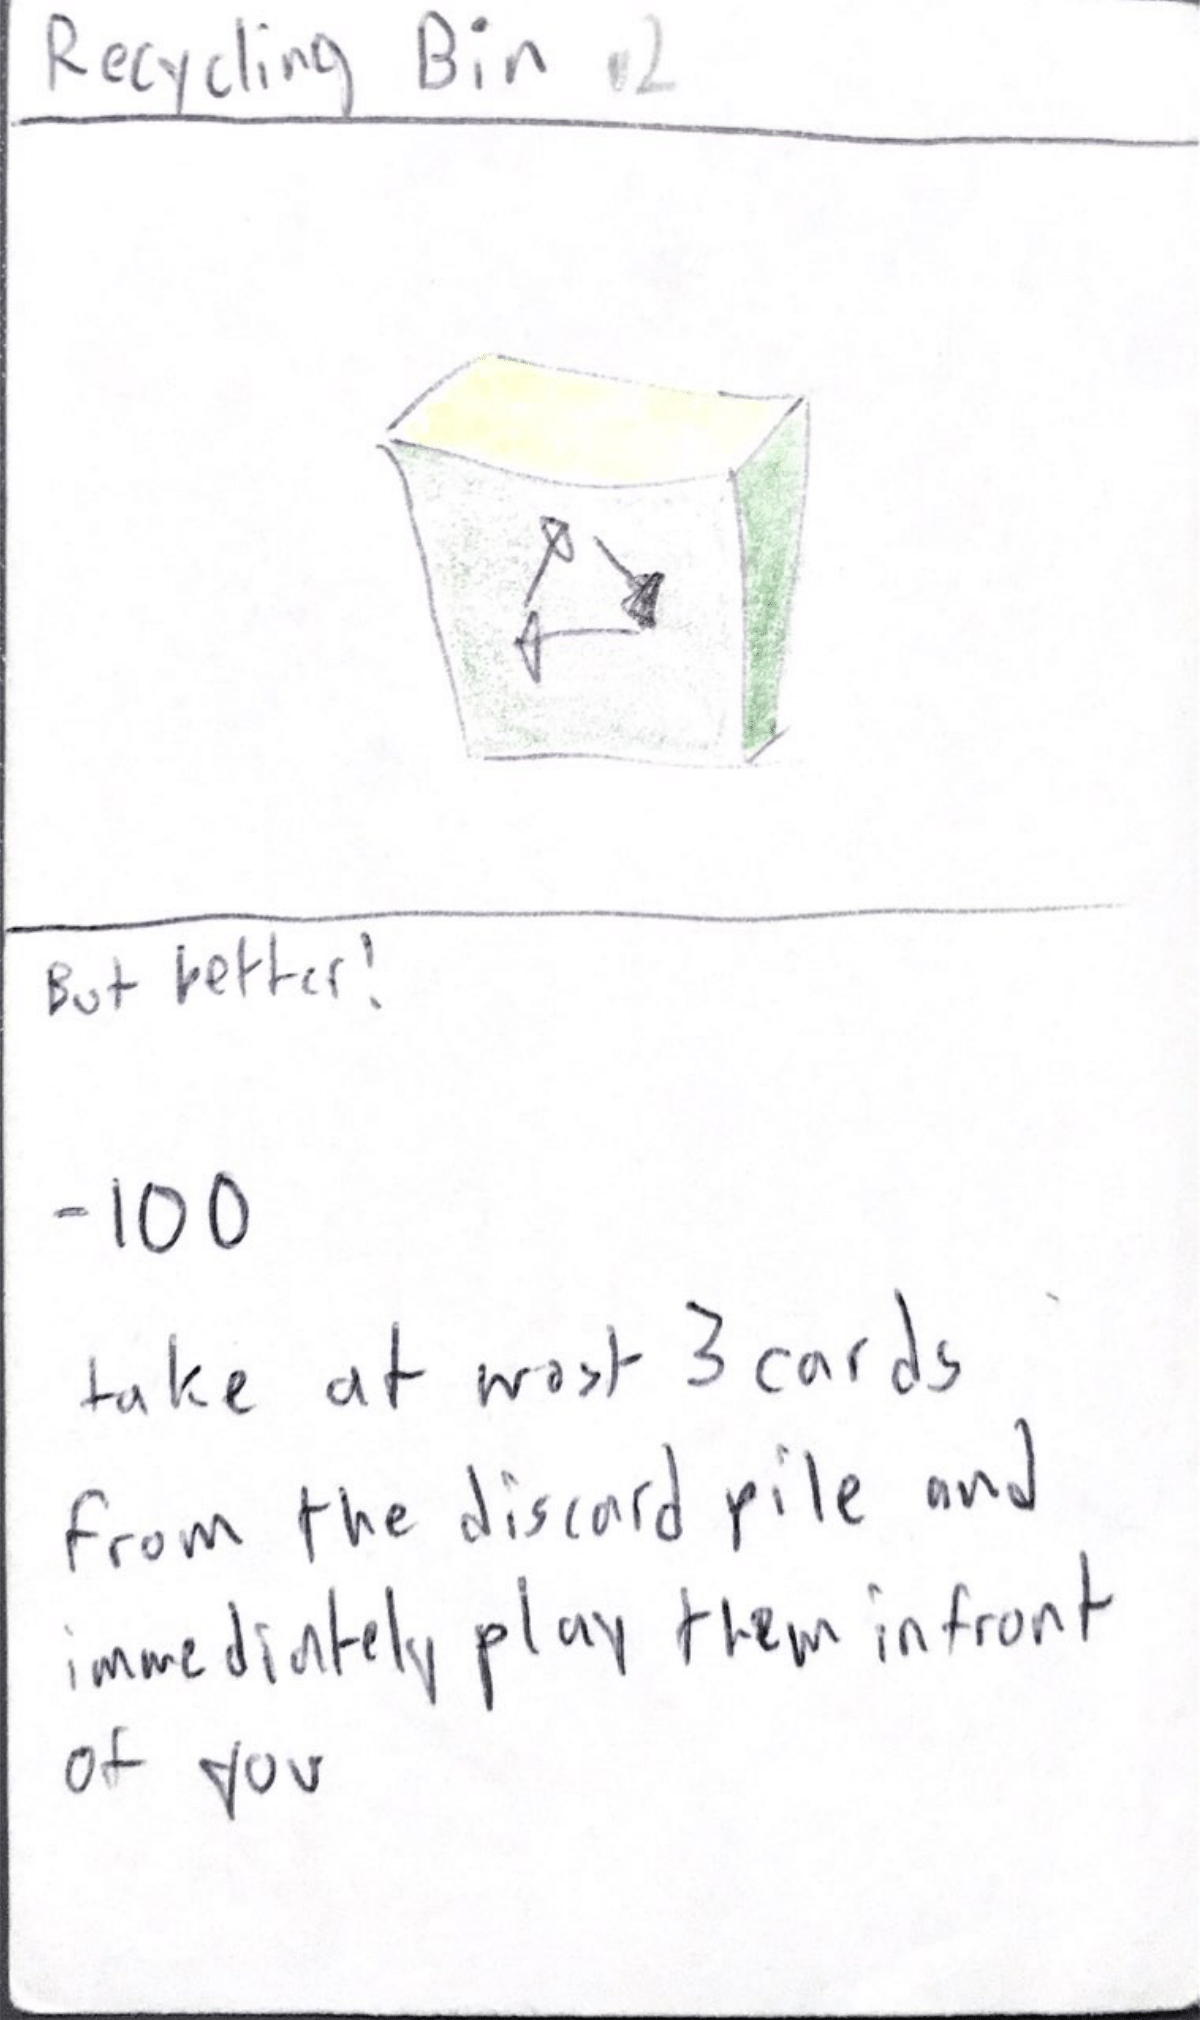 Recycling Bin v2
But better!
-100
take at most 3 cards
from the discard pile and
immediately play them infront
of you